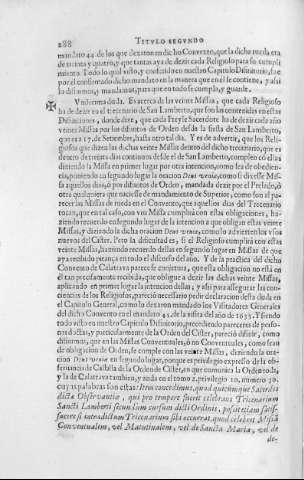 288 TITVLO SEGVNDO
mandato 44 de los que dexaron en dicho Convento, que la dicha meda era
de treinta y quatro, y que tantas aya de dezir cada Religioso para so cumpli
miento. Todo lo qual visto, y conferido en nuestro Capitulo Difinitorio, fue
por el confirmado dicho mandato en la manera que en él se contiene, y assi
lo difinimos, y mandamos, para que en todo se cumpla, y guarde.
Vna forma de la Exactica de las veinte Missas, que cada Religioso
ha de dezir en el trecenario de San Lamberto, que son las contenidas en estas
Difiniciones, donde dize, que cada Freyle Sacerdote ha de dezir cada año
veinte Missas por los difuntos de Orden desde la fiesta de San Lamberto,
que es a 17. de Setiembre, hasta otro tal dia. Y es de advertir, que los Reli-
giosos que dizen las dichas veinte Missas dentro del dicho trecenario, que es
dentro de treinta dias continuos desde el de San Lamberto, cumplen con ellas
diziendo la Missa en primer lugar por otra intencion, como sea de obedien-
cia, poniendo en segundo lugar la oracion Deus veniæ, como si dixesse Mis-
sa aquellos dias, ò por difuntos de Orden, mandada dezir por el Perlado, ò
otra qualquiera que naciesse de mandamiento de Superior, como son al pa-
recer las Missas de meda en el Convento, que aquellos dias del Trecenario
tocan, que en tal caso, con vna Missa cumplirà con estas obligaciones, ha-
ziendo recuerdo en segundo lugar de la intencion a que obligan estas veinte
Missas, y diziendo la dicha oracion Deus veniæ, como lo advierten los vsos
nuevos del Cister. Pero la dificultad es, si el Religioso cumplirà con estas
veinte Missas, haziendo recuerdo dellas en segundo lugar en Missas de que
aya recibido pitança en todo el discurso del año. Y de la practica del dicho
Convento de Calatrava parece se conjetura, que esta obligacion no està en
èl tan precisamente recibida, que obligue a dezir las dichas veinte Missas,
aplicando en primer lugar la intencion dellas; y assi para assegurar las con-
ciencias de los Religiosos, pareciò necessario pedir declaracion desta duda en
el Capitulo General, como la dexaron mandado los Visitadores Generales
del dicho Convento en el mandato 45. de la visita del año de 1635. Y siendo
todo visto en nuestro Capitulo Difinitorio, precediendo pareceres de perso-
nas doctas, y particularmente de la Orden del Cister, pareciò difinir, como
difinimos, que en las Missas Conventuales, ò no Conventuales, como sean
de obligacion de Orden, se cumple con las veinte Missas, diziendo la ora-
cion Deus veniæ en segundo lugar, porque es privilegio expresso de la ob-
servancia de Castilla de la Orden de Cister, en que comunica la Orden toda,
y la de Calatrava tambien, y anda en el tomo 2. privilegio 10. numero 30.
cuyas palabras son estas: Item concedimus, quod quicumque Sacerdos
dictæ Observantiæ, qui pro tempore fuerit celebrans Tricenarium
Sancti Lamberti secundum cursum dicti Ordinis, possit etiam satis-
facere si intra dictum Tricenarium sibi occurrat, quod celebret Missam
Conventualem, vel Matutinalem, vel de Sancta Maria, vel de
de-